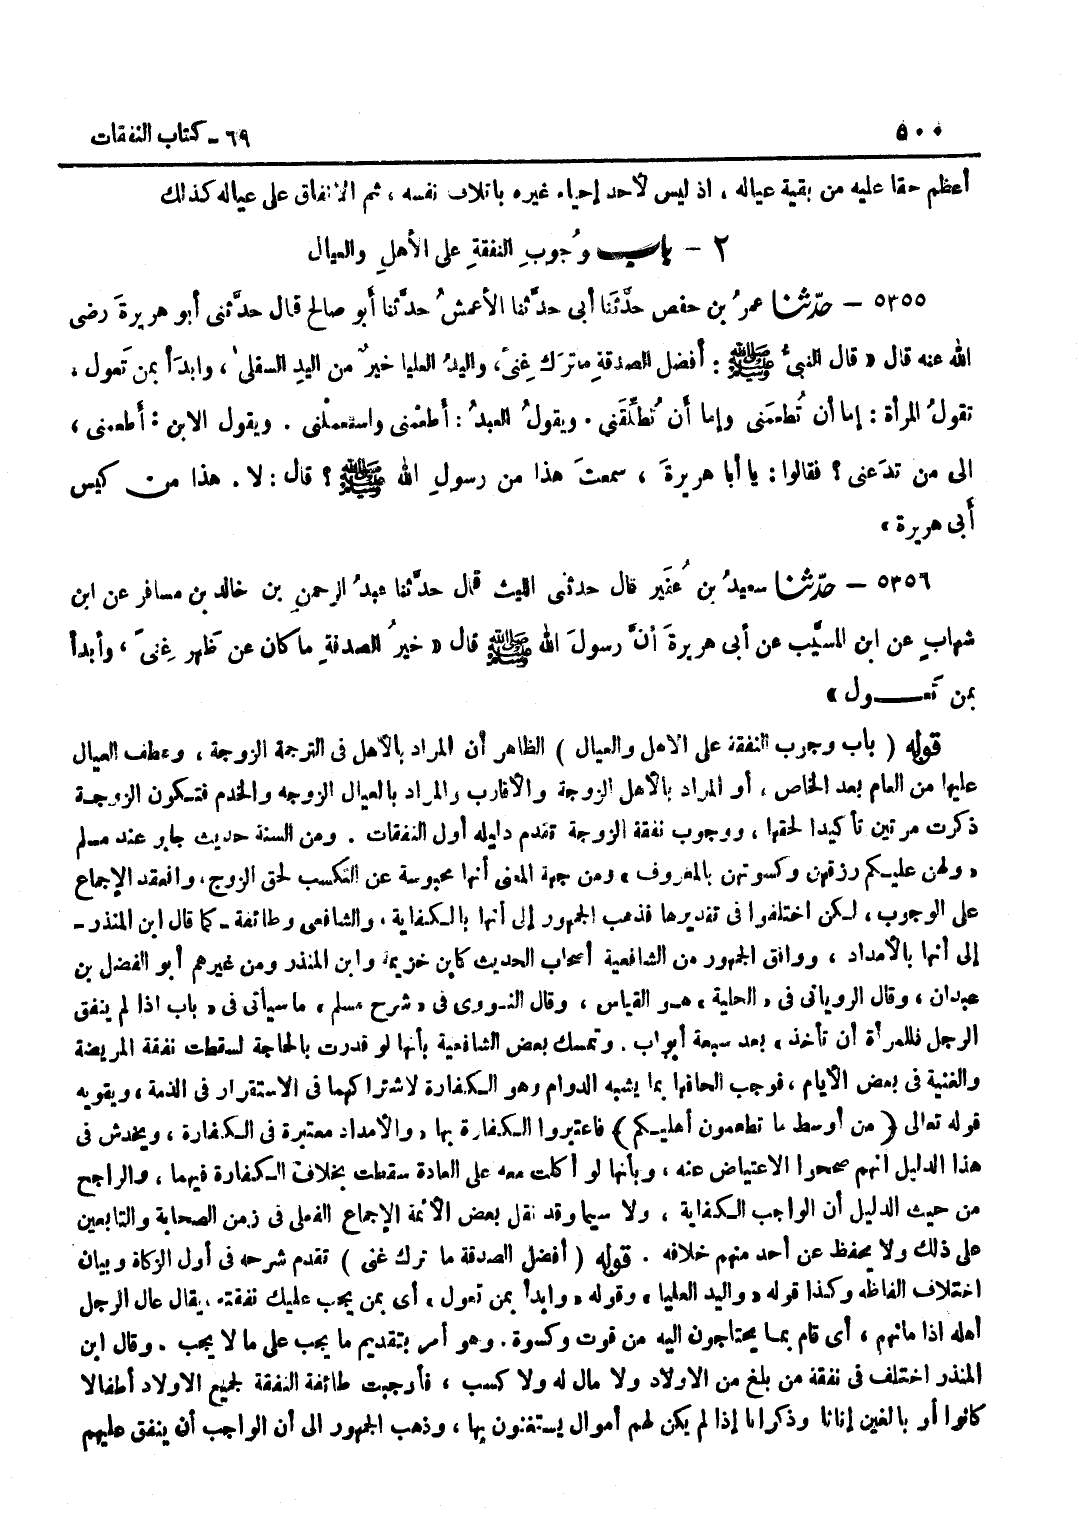 ٥٠٠
٦٩ - كتاب النفقات
أعظم حقا عليه من بقية عياله ، اذ ليس لأحد إحياء غيره باتلاف نفسه ، ثم الإنفاق على عياله كذلك
٢ - باب وُجوبِ النفقةِ على الأهلِ والعيال
٥٣٥٥ - حدّثنا عمرُ بن حفص حدَّثَنا أبى حدَّثنا الأعمشُ حدَّثنا أبو صالح قال حدَّثنى أبو هريرةَ رضى
الله عنه قال « قال النبىُّ ﷺ : أفضل الصدقةِ ما تركَ غِنىً، واليدُ العليا خيرٌ من اليدِ السفلىٰ ، وابدَأ بمن تَعول .
تقولُ المرأة : إما أن تُطعمَنى وإما أن تُطلِّقَني . ويقولُ العبدُ : أطعْمنى واستعملْنى . ويقول الابن : أطعمنى ،
الى من تدَعنى ؟ فقالوا : يا أبا هريرةَ ، سمعتَ هذا من رسولِ الله ﷺ ؟ قال : لا . هذا من كيس
أبى هريرة »
٥٣٥٦ - حدّثنا سعيدُ بن عُفَير قال حدثنى الليث قال حدَّثنا عبدُ الرحمنِ بن خالد بن مسافر عن ابن
شهابٍ عن ابن المسيَّب عن أبى هريرةَ أنَّ رسولَ الله ﷺ قال « خيرُ الصدقةِ ما كان عن ظهرِ غِنىً ، وأبدأ
بمن تَعـــول »
قوله ( باب وجوب النفقة على الاهل والعيال ) الظاهر أن المراد بالأهل فى الترجمة الزوجة ، وعطف العيال
عليها من العام بعد الخاص ، أو المراد بالأهل الزوجة والأقارب والمراد بالعيال الزوجه والخدم فتكون الزوجة
ذكرت مرتين تأكيدا لحقها ، ووجوب نفقة الزوجة تقدم دليله أول النفقات . ومن السنة حديث جابر عند مسلم
« ولهن عليكم رزقهن وكسوتهن بالمعروف » ومن جهة المعنى أنها محبوسة عن التكسب لحق الزوج ، وانعقد الإجماع
على الوجوب ، لكن اختلفوا فى تقديرها فذهب الجمهور إلى أنها بالكفاية ، والشافعى وطائفة ـ كما قال ابن المنذر ـ
إلى أنها بالأمداد ، ووافق الجمهور من الشافعية أصحاب الحديث كابن خزيمة وابن المنذر ومن غيرهم أبو الفضل بن
عبدان ، وقال الرويانى فى « الحلية » هو القياس ، وقال النووى فى « شرح مسلم » ما سيأتى فى « باب اذا لم ينفق
الرجل فللمرأة أن تأخذ » بعد سبعة أبواب . وتمسك بعض الشافعية بأنها لو قدرت بالحاجة لسقطت نفقة المريضة
والغنية فى بعض الأيام ، فوجب الحاقها بما يشبه الدوام وهو الكفارة لاشتراكهما فى الاستقرار فى الذمة ، ويقويه
قوله تعالى ﴿ من أوسط ما تطعمون أهليكم ﴾ فاعتبروا الكفارة بها ، والأمداد معتبرة فى الكفارة ، ويخدش فى
هذا الدليل انهم صححوا الاعتياض عنه ، وبأنها لو أكلت معه على العادة سقطت بخلاف الكفارة فيهما ، والراجح
من حيث الدليل أن الواجب الكفاية ، ولا سيما وقد نقل بعض الأئمة الإجماع الفعلى فى زمن الصحابة والتابعين
على ذلك ولا يحفظ عن أحد منهم خلافه . قوله ( أفضل الصدقة ما ترك غنى ) تقدم شرحه فى أول الزكاة وبيان
اختلاف الفاظه وكذا قوله « واليد العليا » وقوله « وابدأ بمن تعول » أى بمن يجب عليك نفقته ، يقال عال الرجل
أهله اذا مانهم ، أى قام بما يحتاجون اليه من قوت وكسوة . وهو أمر بتقديم ما يجب على ما لا يجب . وقال ابن
المنذر اختلف فى نفقة من بلغ من الاولاد ولا مال له ولا كسب ، فأوجبت طائفة النفقة لجميع الاولاد أطفالا
كانوا أو بالغين إناثا وذكرانا إذا لم يكن لهم أموال يستغنون بها ، وذهب الجمهور الى أن الواجب أن ينفق عليهم